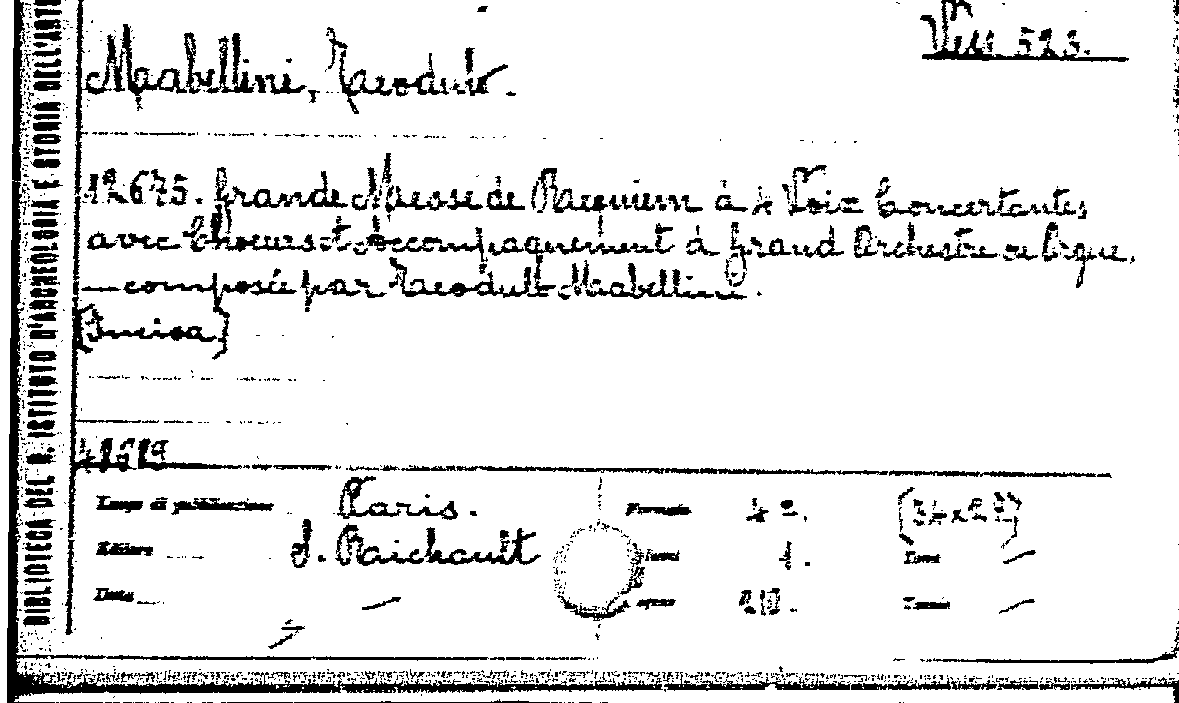 Vess. 523.
Mabellini, Teodulo.
12675. Grande Messe de Requiem à 4 Voix Concertantes
avec Choeurs et Accompagnement à Grand Orchestre ou Orgue.
— composée par Teodulo Mabellini.
[Incisa]
BIBLIOTECA DEL R. ISTITUTO D'ARCHEOLOGIA E STORIA DELL'ARTE
Luogo di pubblicazione Paris. Formato 4º. (34x27)
Editore S. Richault 1. Tomi —
Data — 210. Tavole —